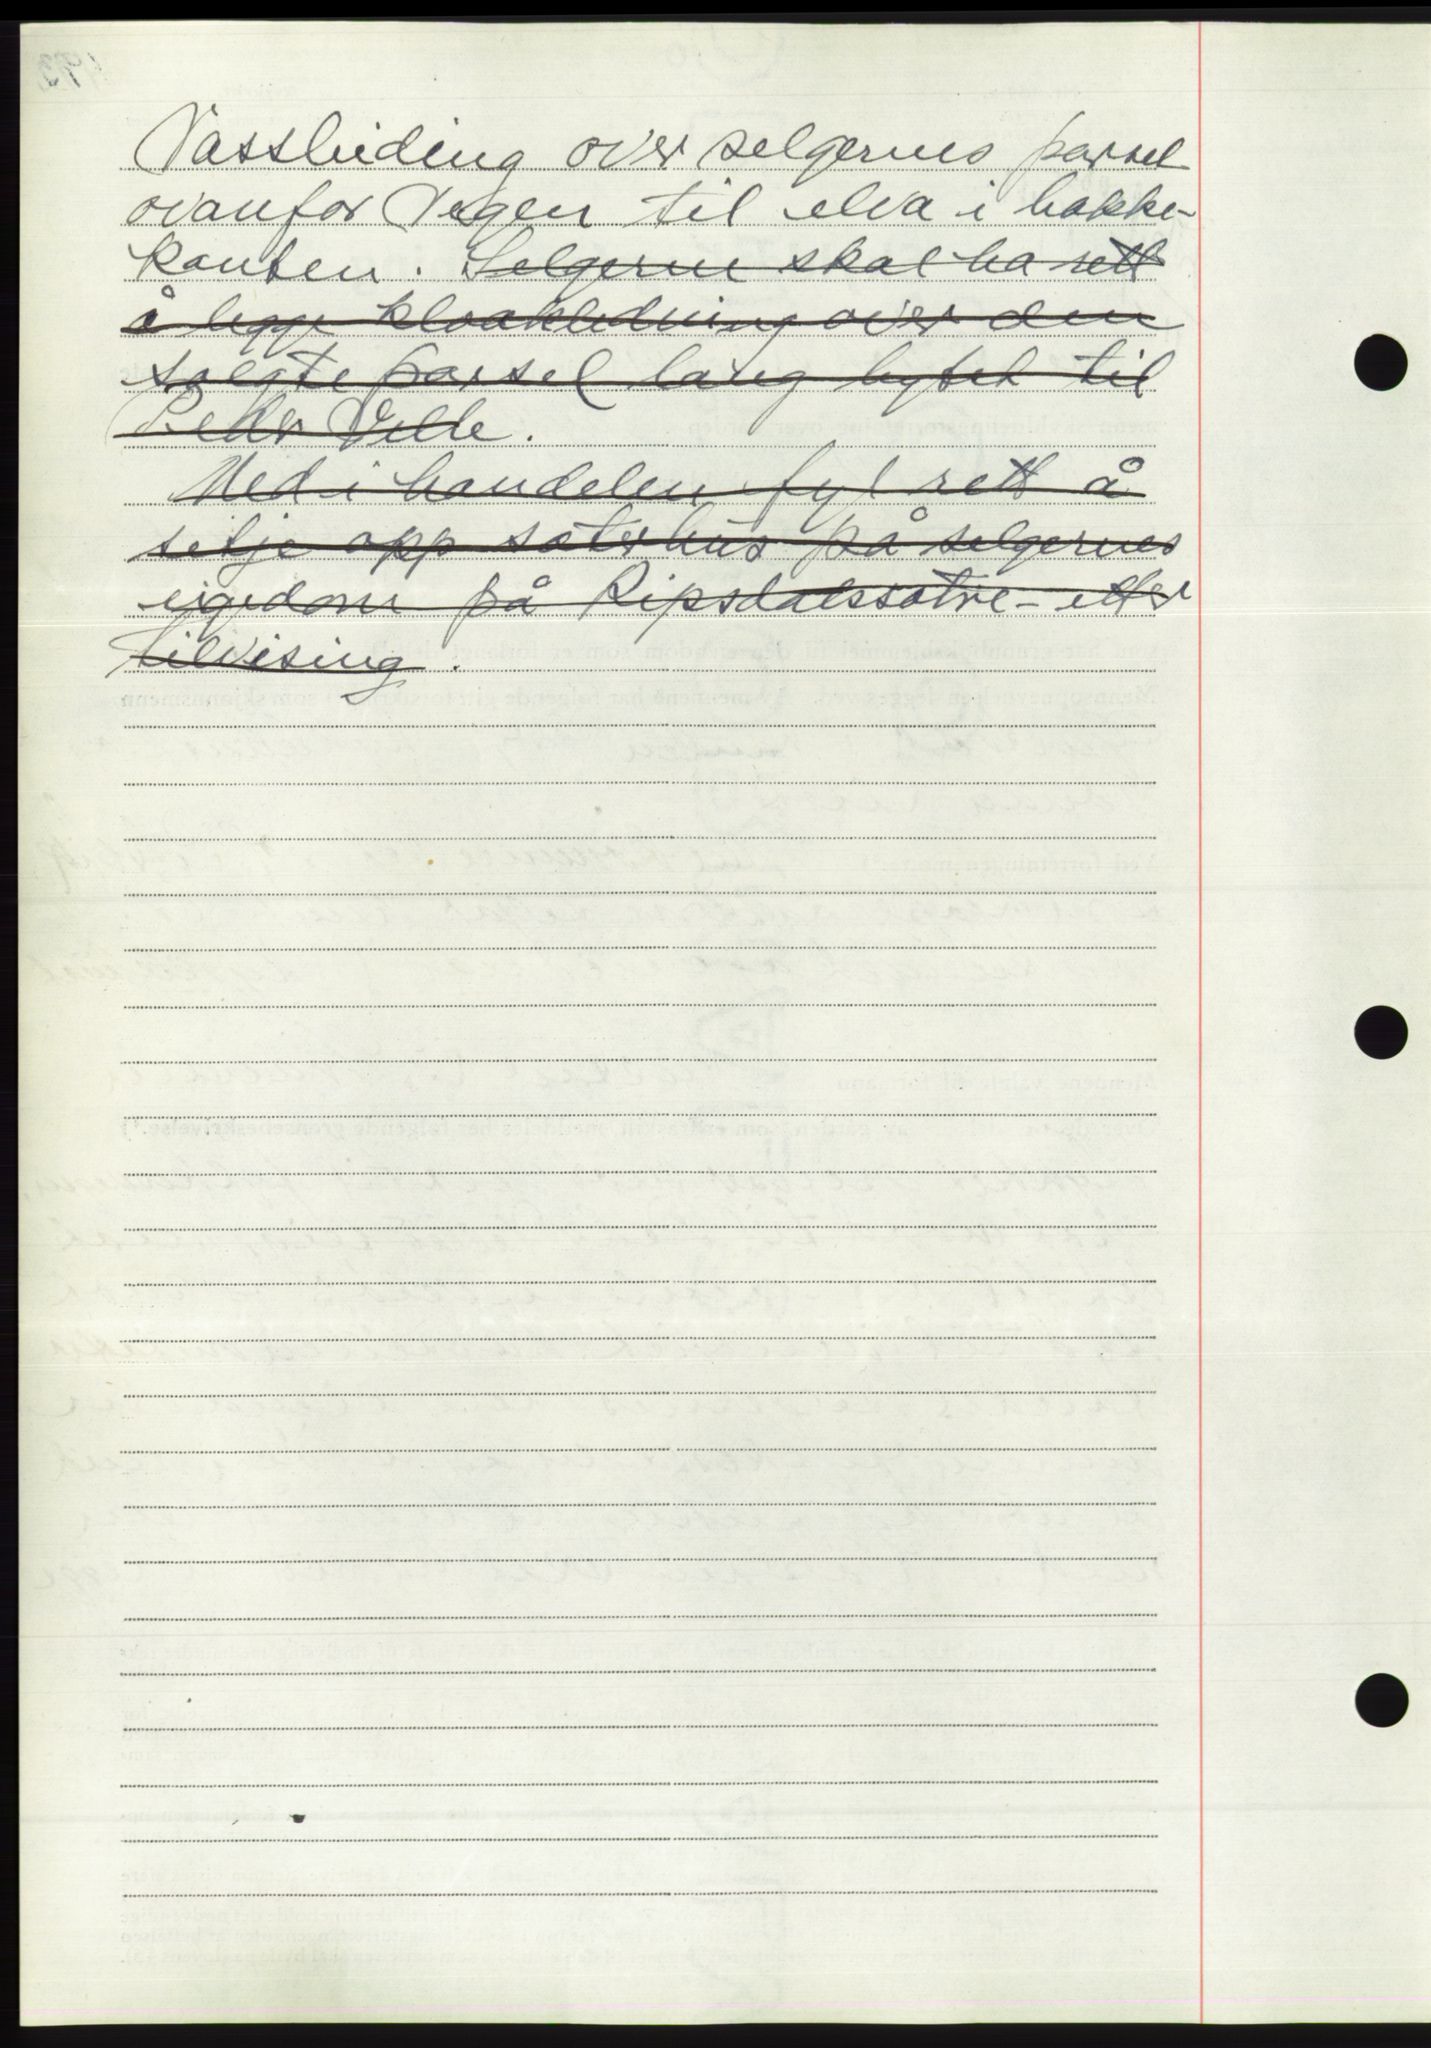 Vassleiding over selgernes parsel
ovanfor Vegen til elva i bakke-
kanten. Selgerne skal ha rett
å legge kloakkledning over den
solgte parsel lang bytet til
Peder Velle.
Med i handelen fyl rett å
setje opp sæterhus på selgernes
eigedom på Ripsdalssætre - etter
tilvising.